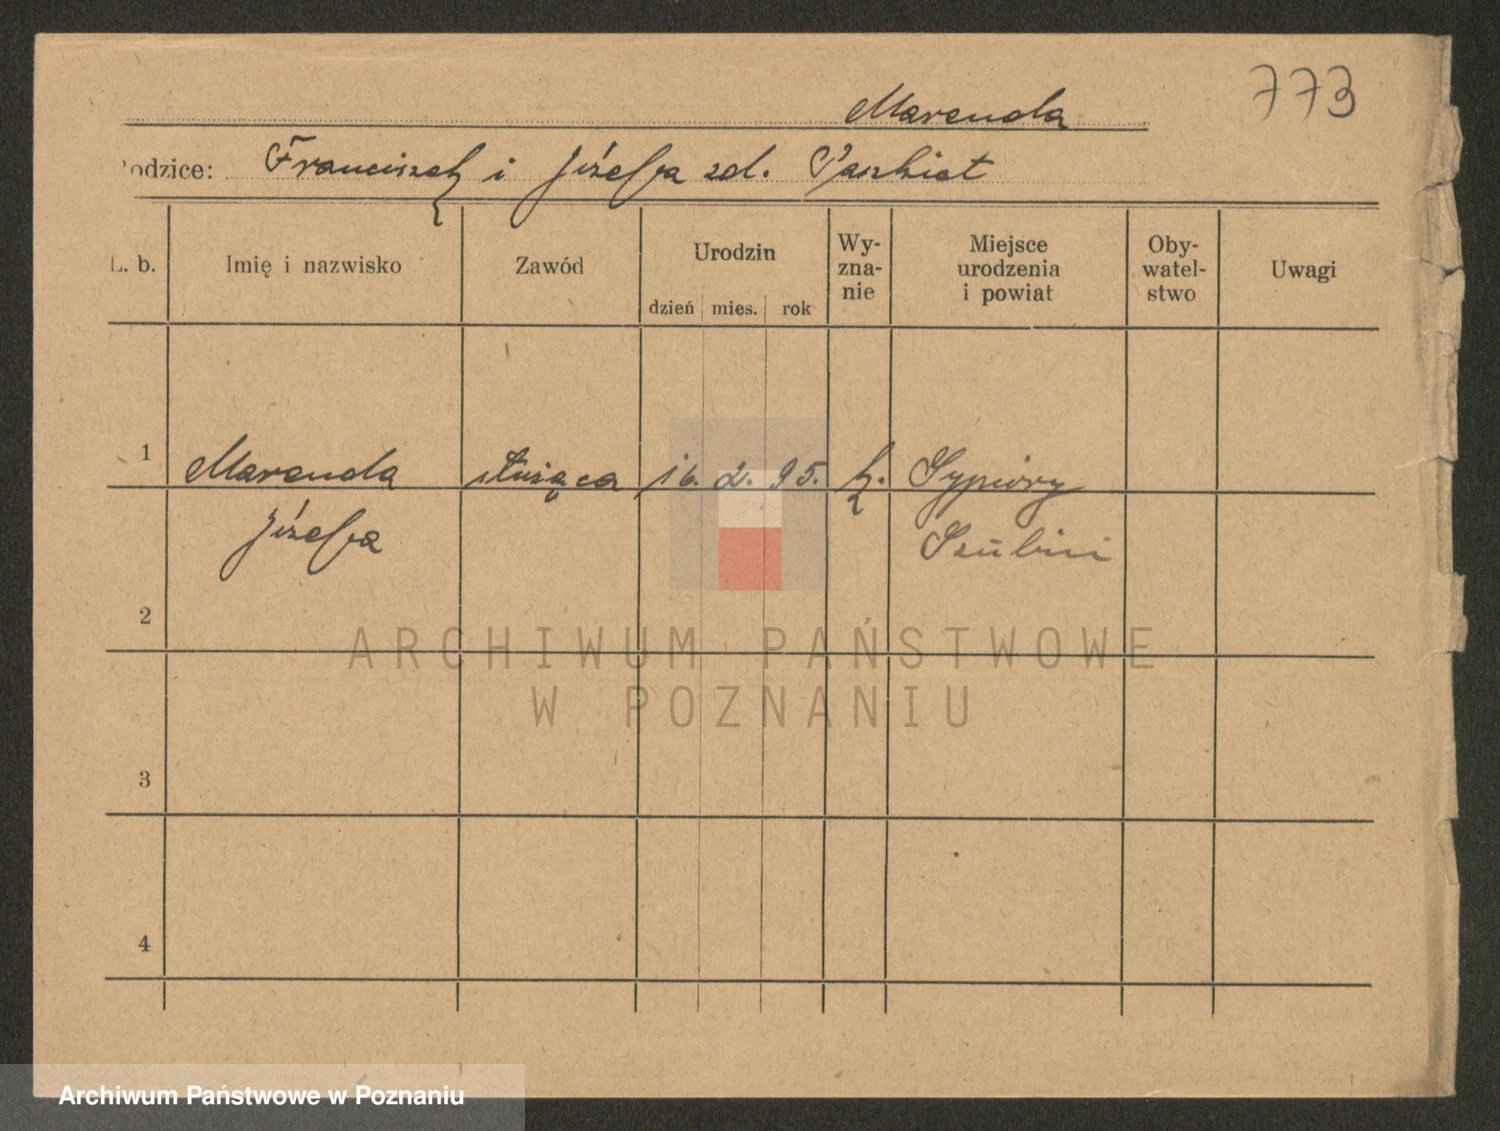 773
Marenda
Rodzice: Franciszek i Józefa zd. Paszkiet
L. b. Imię i nazwisko Zawód Urodzin dzień mies. rok Wy-zna-nie Miejsce urodzenia i powiat Oby-watel-stwo Uwagi
1 Marenda służąca 16. 2. 95. k. Sypióry
Józefa Szubin
2
3
4
ARCHIWUM PAŃSTWOWE
W POZNANIU
Archiwum Państwowe w Poznaniu